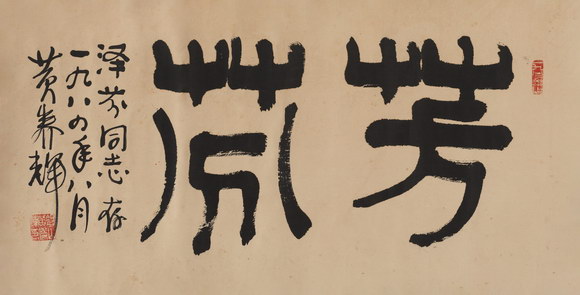 芳芬
泽芬同志存
一九八四年八月
黄养辉